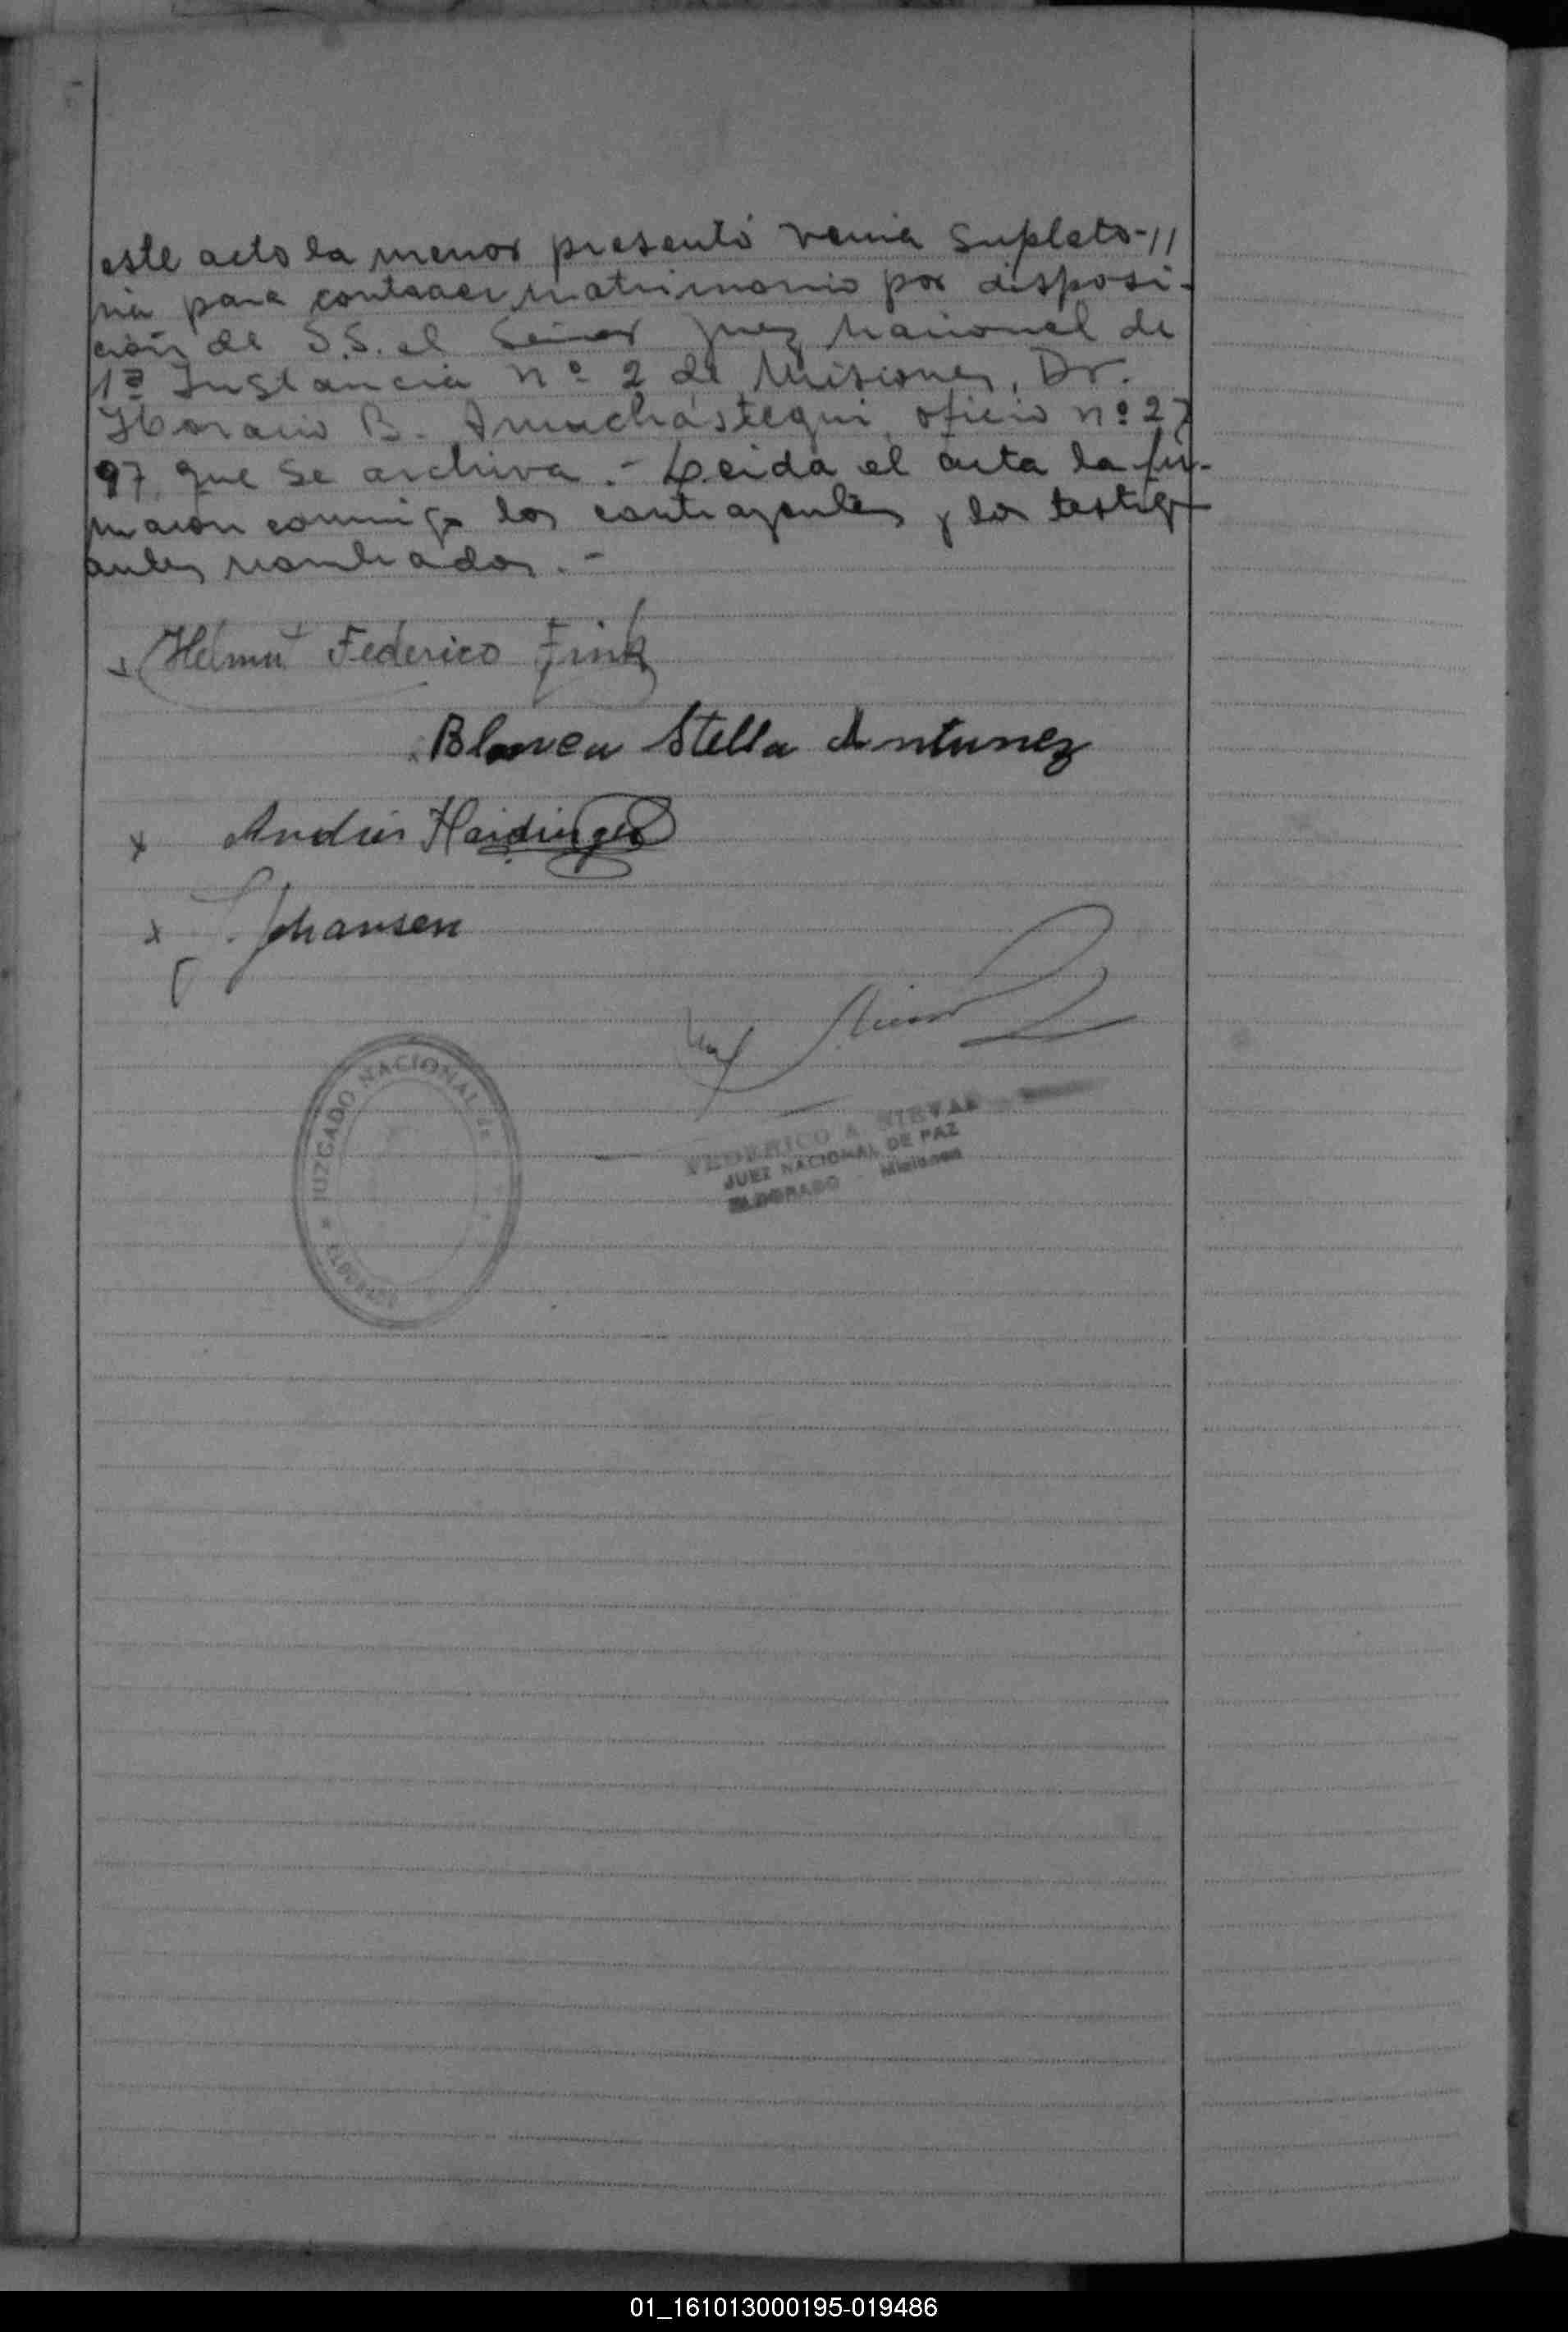 este acto la menor presentó venia supleto-//
ria para contraer matrimonio por disposi-
ción de S.S. el Señor Juez Nacional de
1ª Instancia nº 2 de Misiones, Dr.
Horacio B. Amuchástegui, oficio nº 27
97, que se archiva.- Leída el acta la fir-
maron conmigo los contrayentes y los testigos
antes nombrados.-
Helmut Federico Fink
Blanca Stella Antunez
x Andrés Haidinger
x Johansen
JUZGADO NACIONAL de
FEDERICO A.
JUEZ NACIONAL DE PAZ
ELDORADO - Misiones
01_161013000195-019486